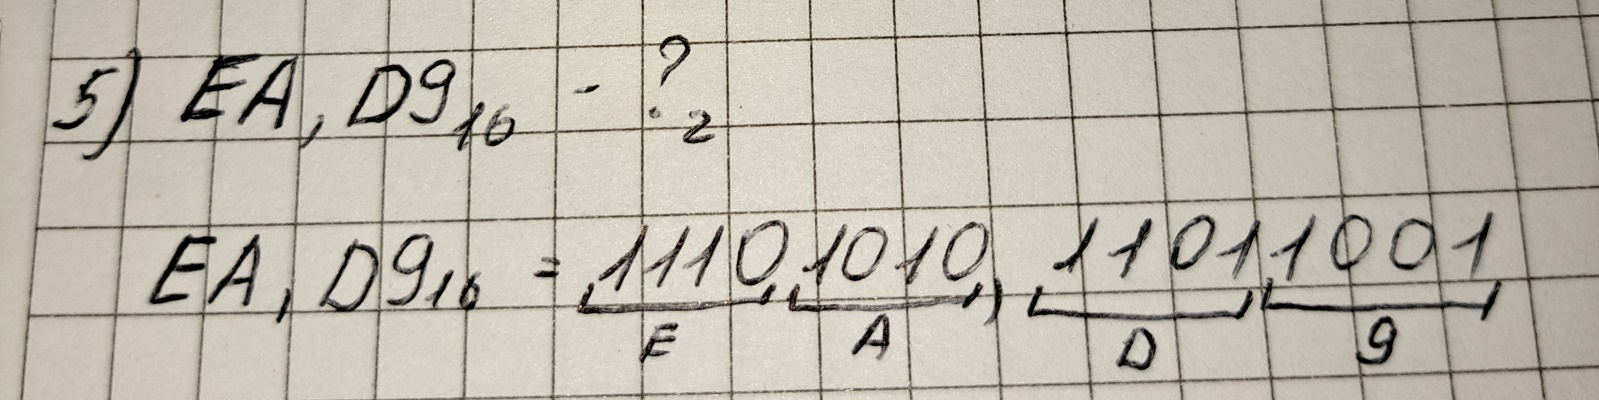 5) EA, D9₁₆ - ?₂
EA, D9₁₆ = 11101010, 11011001
E A D 9